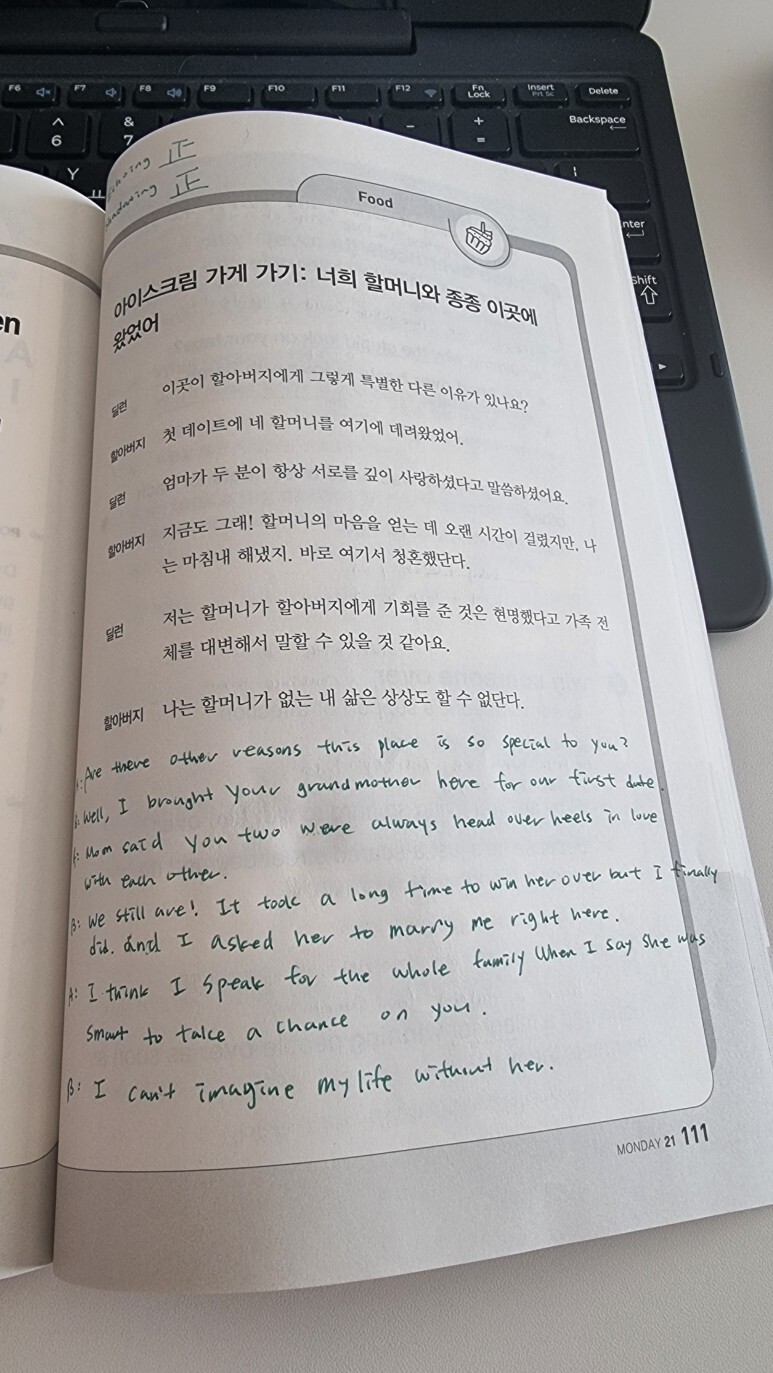 F6
F7
F8
F9
F10
F11
F12
Fn Lock
Insert
Prt Sc
Delete
^
6
&
7
-
+
=
Backspace
Y
ㅛ
Enter
Shift
正
正
Food
en
아이스크림 가게 가기: 너희 할머니와 종종 이곳에
왔었어
딜런 이곳이 할아버지에게 그렇게 특별한 다른 이유가 있나요?
할아버지 첫 데이트에 네 할머니를 여기에 데려왔었어.
딜런 엄마가 두 분이 항상 서로를 깊이 사랑하셨다고 말씀하셨어요.
할아버지 지금도 그래! 할머니의 마음을 얻는 데 오랜 시간이 걸렸지만, 나
는 마침내 해냈지. 바로 여기서 청혼했단다.
딜런 저는 할머니가 할아버지에게 기회를 준 것은 현명했다고 가족 전
체를 대변해서 말할 수 있을 것 같아요.
할아버지 나는 할머니가 없는 내 삶은 상상도 할 수 없단다.
A: Are there other reasons this place is so special to you?
B: Well, I brought your grandmother here for our first date.
A: Mom said you two were always head over heels in love
with each other.
B: We still are! It took a long time to win her over but I finally
did. and I asked her to marry me right here.
A: I think I speak for the whole family when I say she was
smart to take a chance on you.
B: I can't imagine my life without her.
MONDAY 21 111